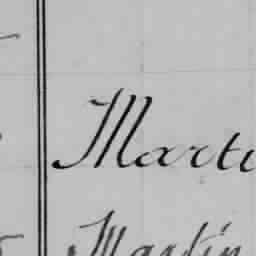 Marti
Martin